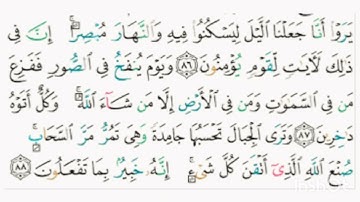 يَرَوْا۟ أَنَّا جَعَلْنَا ٱلَّيْلَ لِيَسْكُنُوا۟ فِيهِ وَٱلنَّهَارَ مُبْصِرًا ۚ إِنَّ فِى
ذَٰلِكَ لَءَايَٰتٍ لِّقَوْمٍ يُؤْمِنُونَ ٨٦ وَيَوْمَ يُنفَخُ فِى ٱلصُّورِ فَفَزِعَ
مَن فِى ٱلسَّمَٰوَٰتِ وَمَن فِى ٱلْأَرْضِ إِلَّا مَن شَآءَ ٱللَّهُ ۚ وَكُلٌّ أَتَوْهُ
دَٰخِرِينَ ٨٧ وَتَرَى ٱلْجِبَالَ تَحْسَبُهَا جَامِدَةً وَهِىَ تَمُرُّ مَرَّ ٱلسَّحَابِ ۚ
صُنْعَ ٱللَّهِ ٱلَّذِىٓ أَتْقَنَ كُلَّ شَىْءٍ ۚ إِنَّهُۥ خَبِيرٌۢ بِمَا تَفْعَلُونَ ٨٨